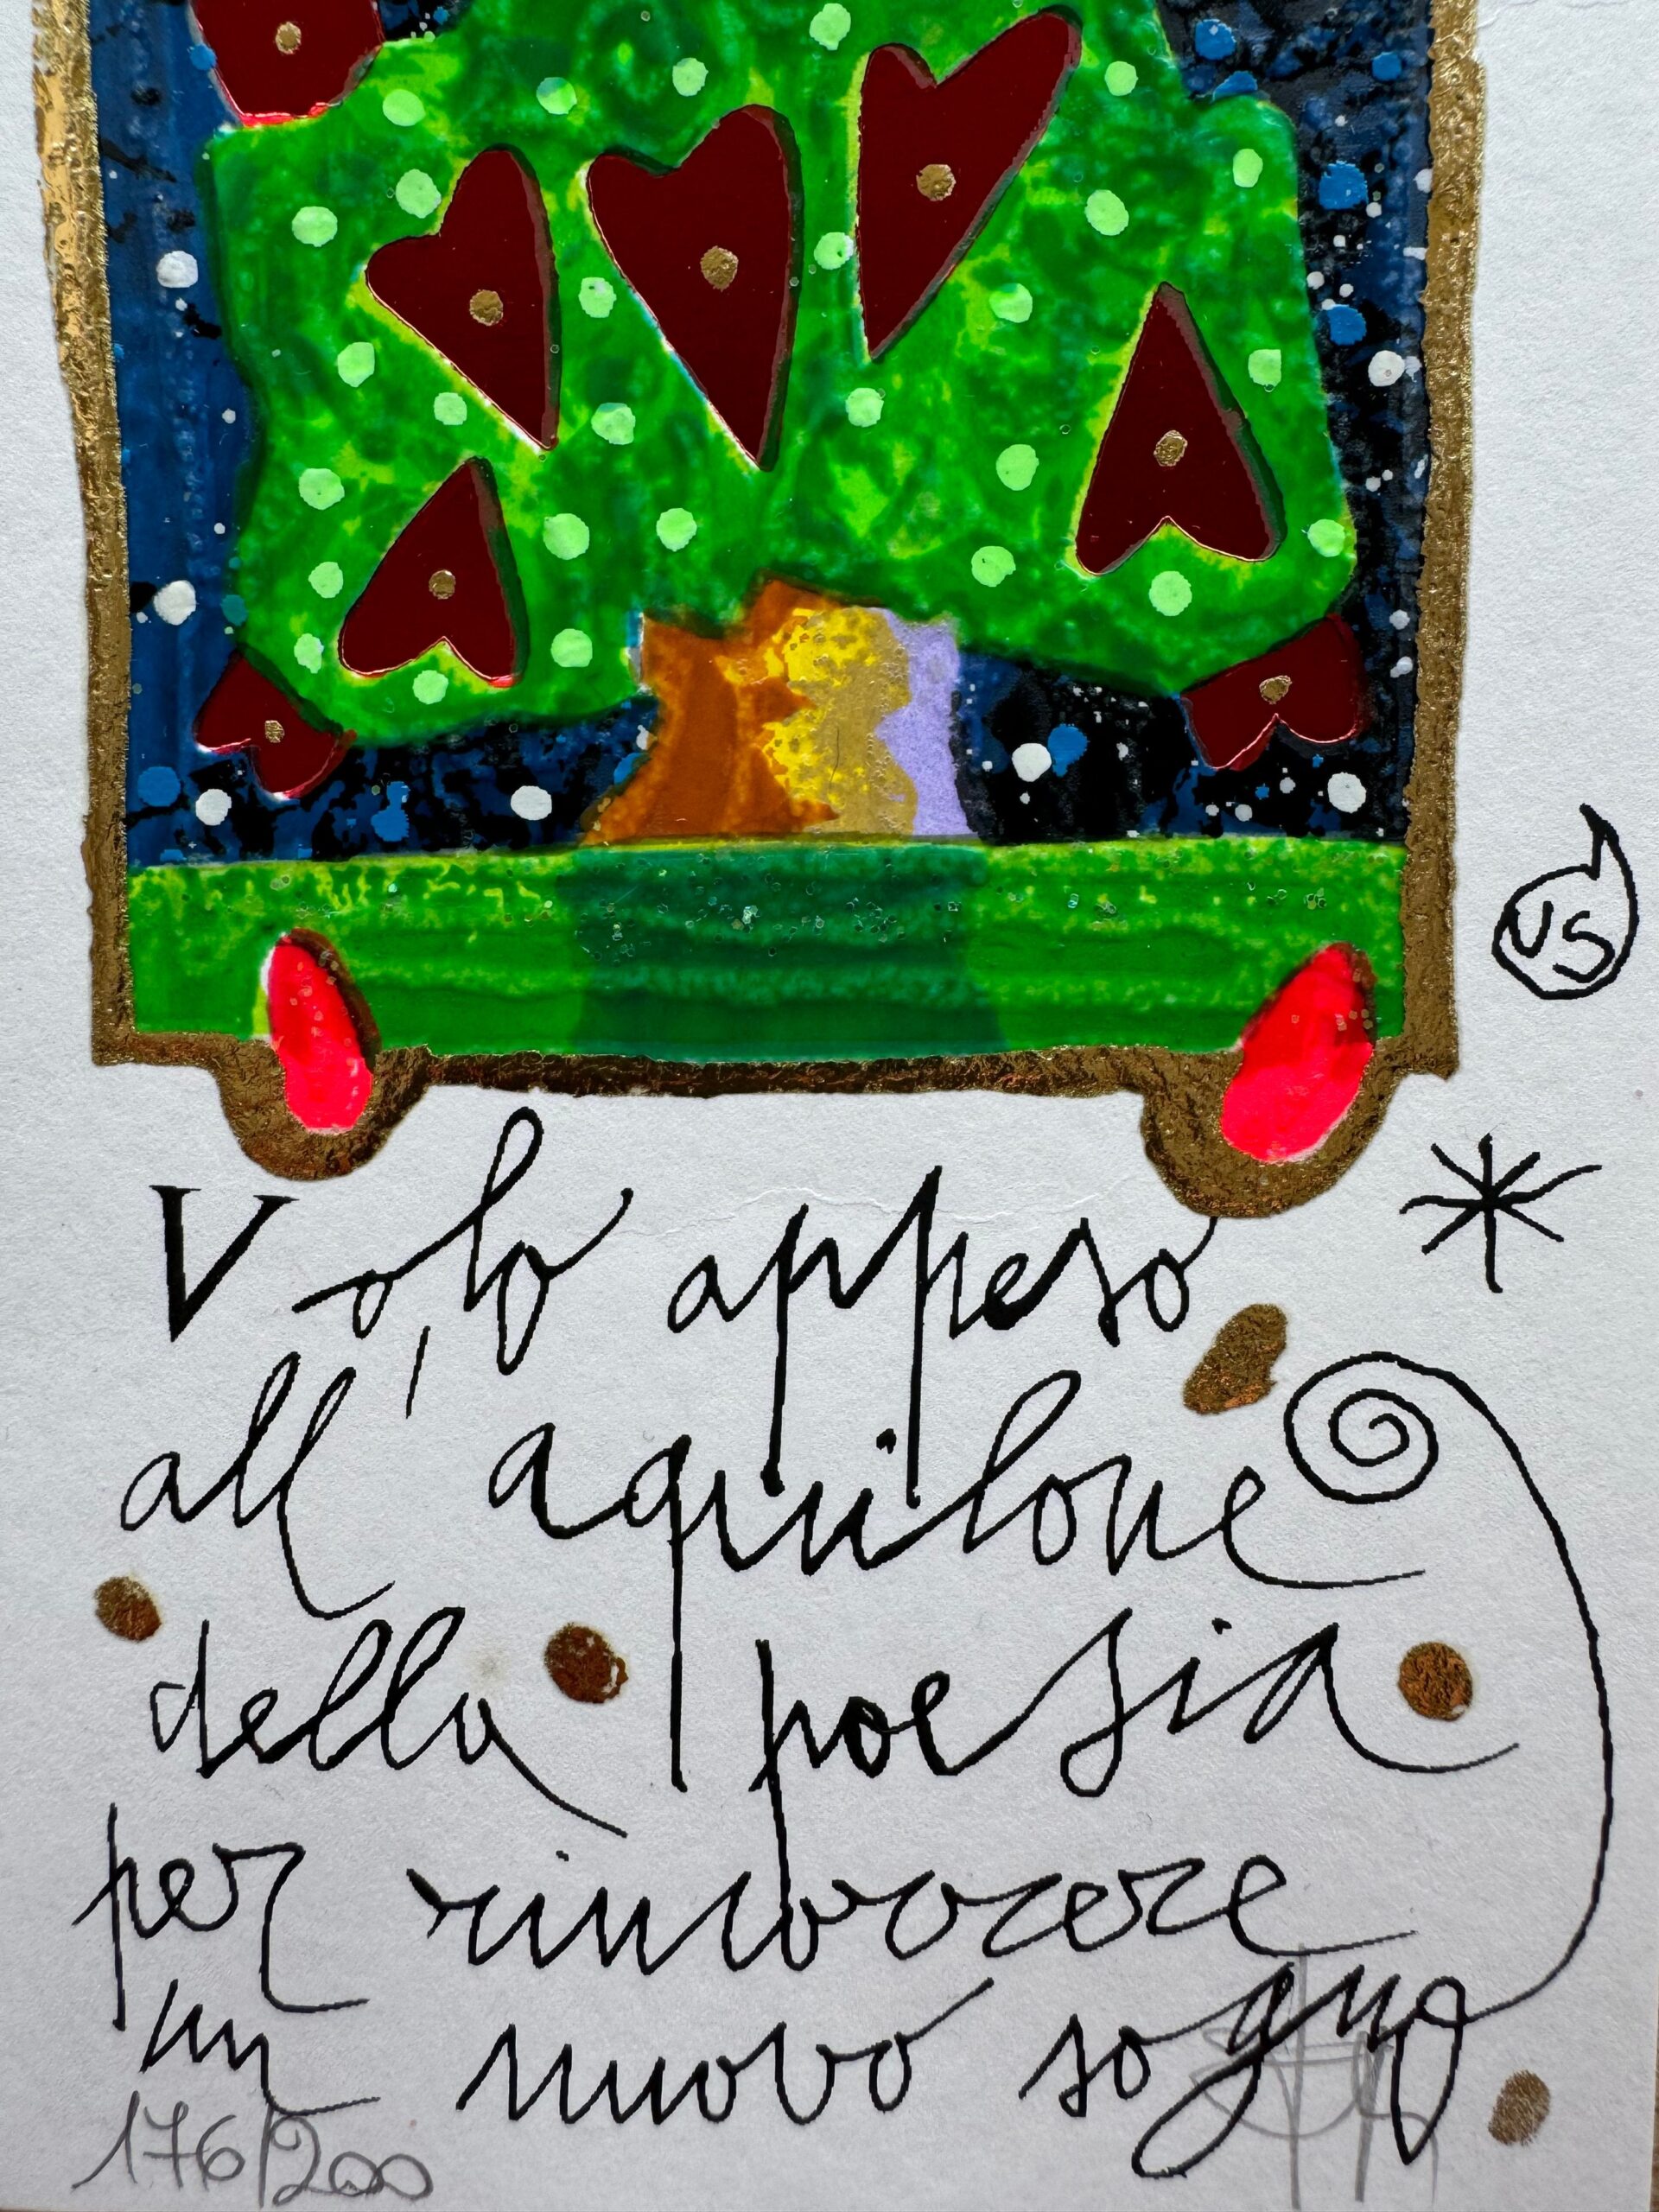 VS
Volo appeso
all'aquilone
della poesia
per rincorrere
un nuovo sogno
176/200